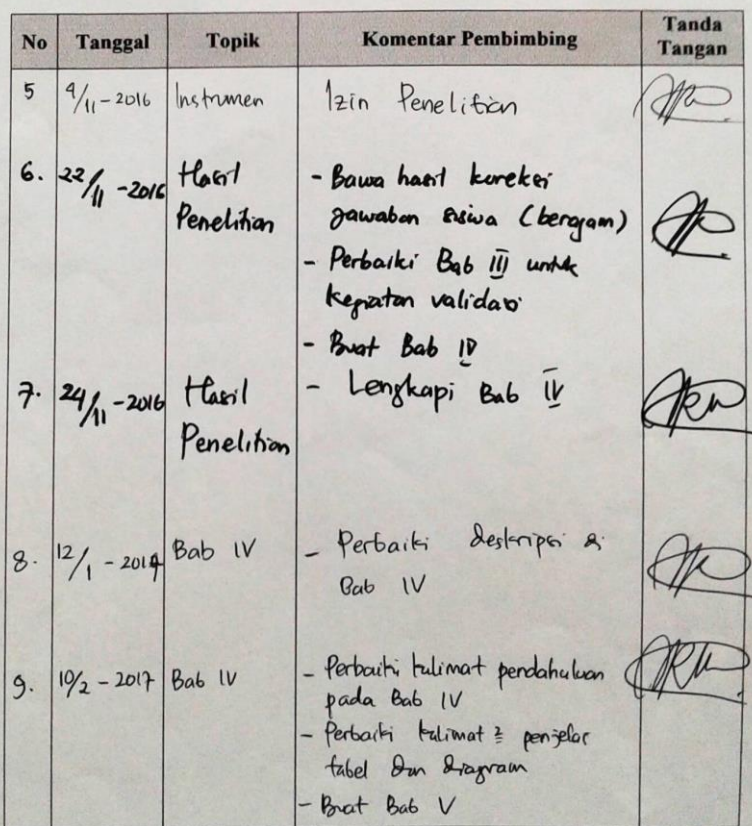 No Tanggal Topik Komentar Pembimbing Tanda Tangan
5 9/11-2016 Instrumen Izin Penelitian
6. 22/11-2016 Hasil - Bawa hasil koreksi
Penelitian jawaban siswa (beragam)
- Perbaiki Bab III untuk
kegiatan validasi
- Buat Bab IV
7. 24/11-2016 Hasil - Lengkapi Bab IV
Penelitian
8. 12/1-2017 Bab IV - Perbaiki deskripsi di
Bab IV
9. 10/2-2017 Bab IV - Perbaiki kalimat pendahuluan
pada Bab IV
- Perbaiki kalimat2 penjelas
tabel dan diagram
- Buat Bab V